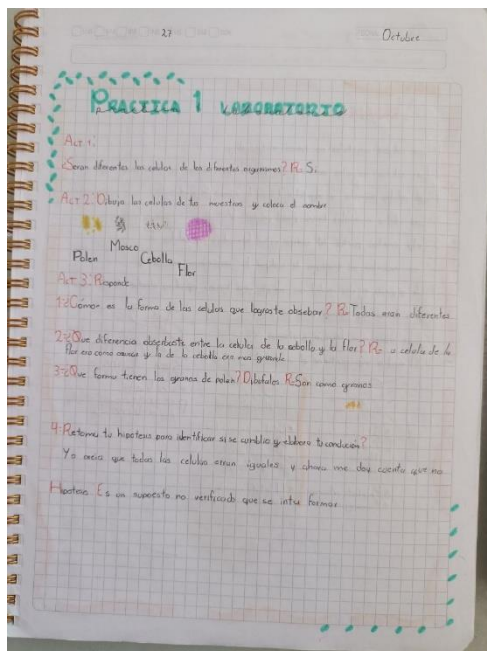 27
Octubre
PRACTICA 1 LABORATORIO
Act 1:
¿Seran diferentes las celulas de los diferentes organismos? R. Si
Act 2: Dibuja las celulas de tu muestra y coloca el nombre
Polen
Mosco
Cebolla
Flor
Act 3: Responde
1-¿Como es la forma de las celulas que lograste obsebar? R. Todas eran diferentes
2-¿Que diferencia obserbaste entre la celula de la cebolla y la flor? R. celula de la
flor era como y la de la cebolla era mas grande
3-¿Que forma tienen los granos de polen? Dibujalos R. Son como granos
4-Retoma tu hipotesis para identificar si se cumplio y elabora tu conclución?
Yo creia que todas las celulas eran iguales y ahora me doy cuenta que no
Hipotesis Es un supuesto no verificado que se formar